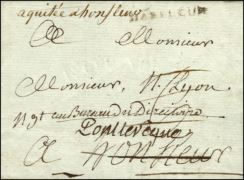 aquitée a honfleur HONFLEUR
A Monsieur
Monsieur, N. Lyon
Ngt au Bureau du Directoire
Pontleveque
A Honfleur